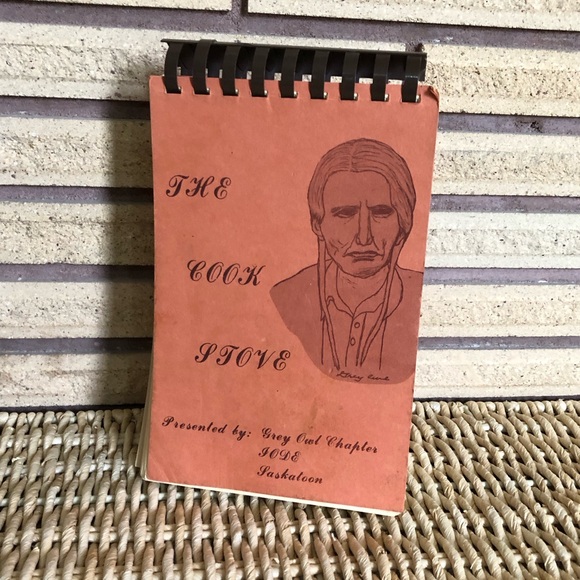 THE
COOK
STOVE
Presented by: Grey Owl Chapter
IODE
Saskatoon